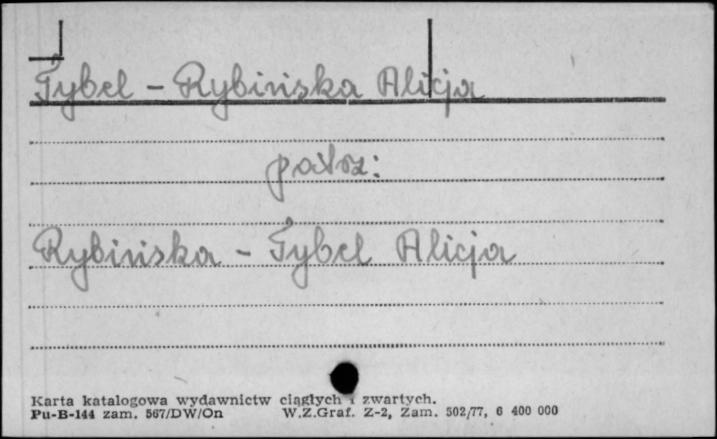 Tybel - Rybińska Alicja
patrz:
Rybińska - Tybel Alicja
Karta katalogowa wydawnictw ciągłych i zwartych.
Pu-B-144 zam. 567/DW/On W.Z.Graf. Z-2, Zam. 502/77, 6 400 000